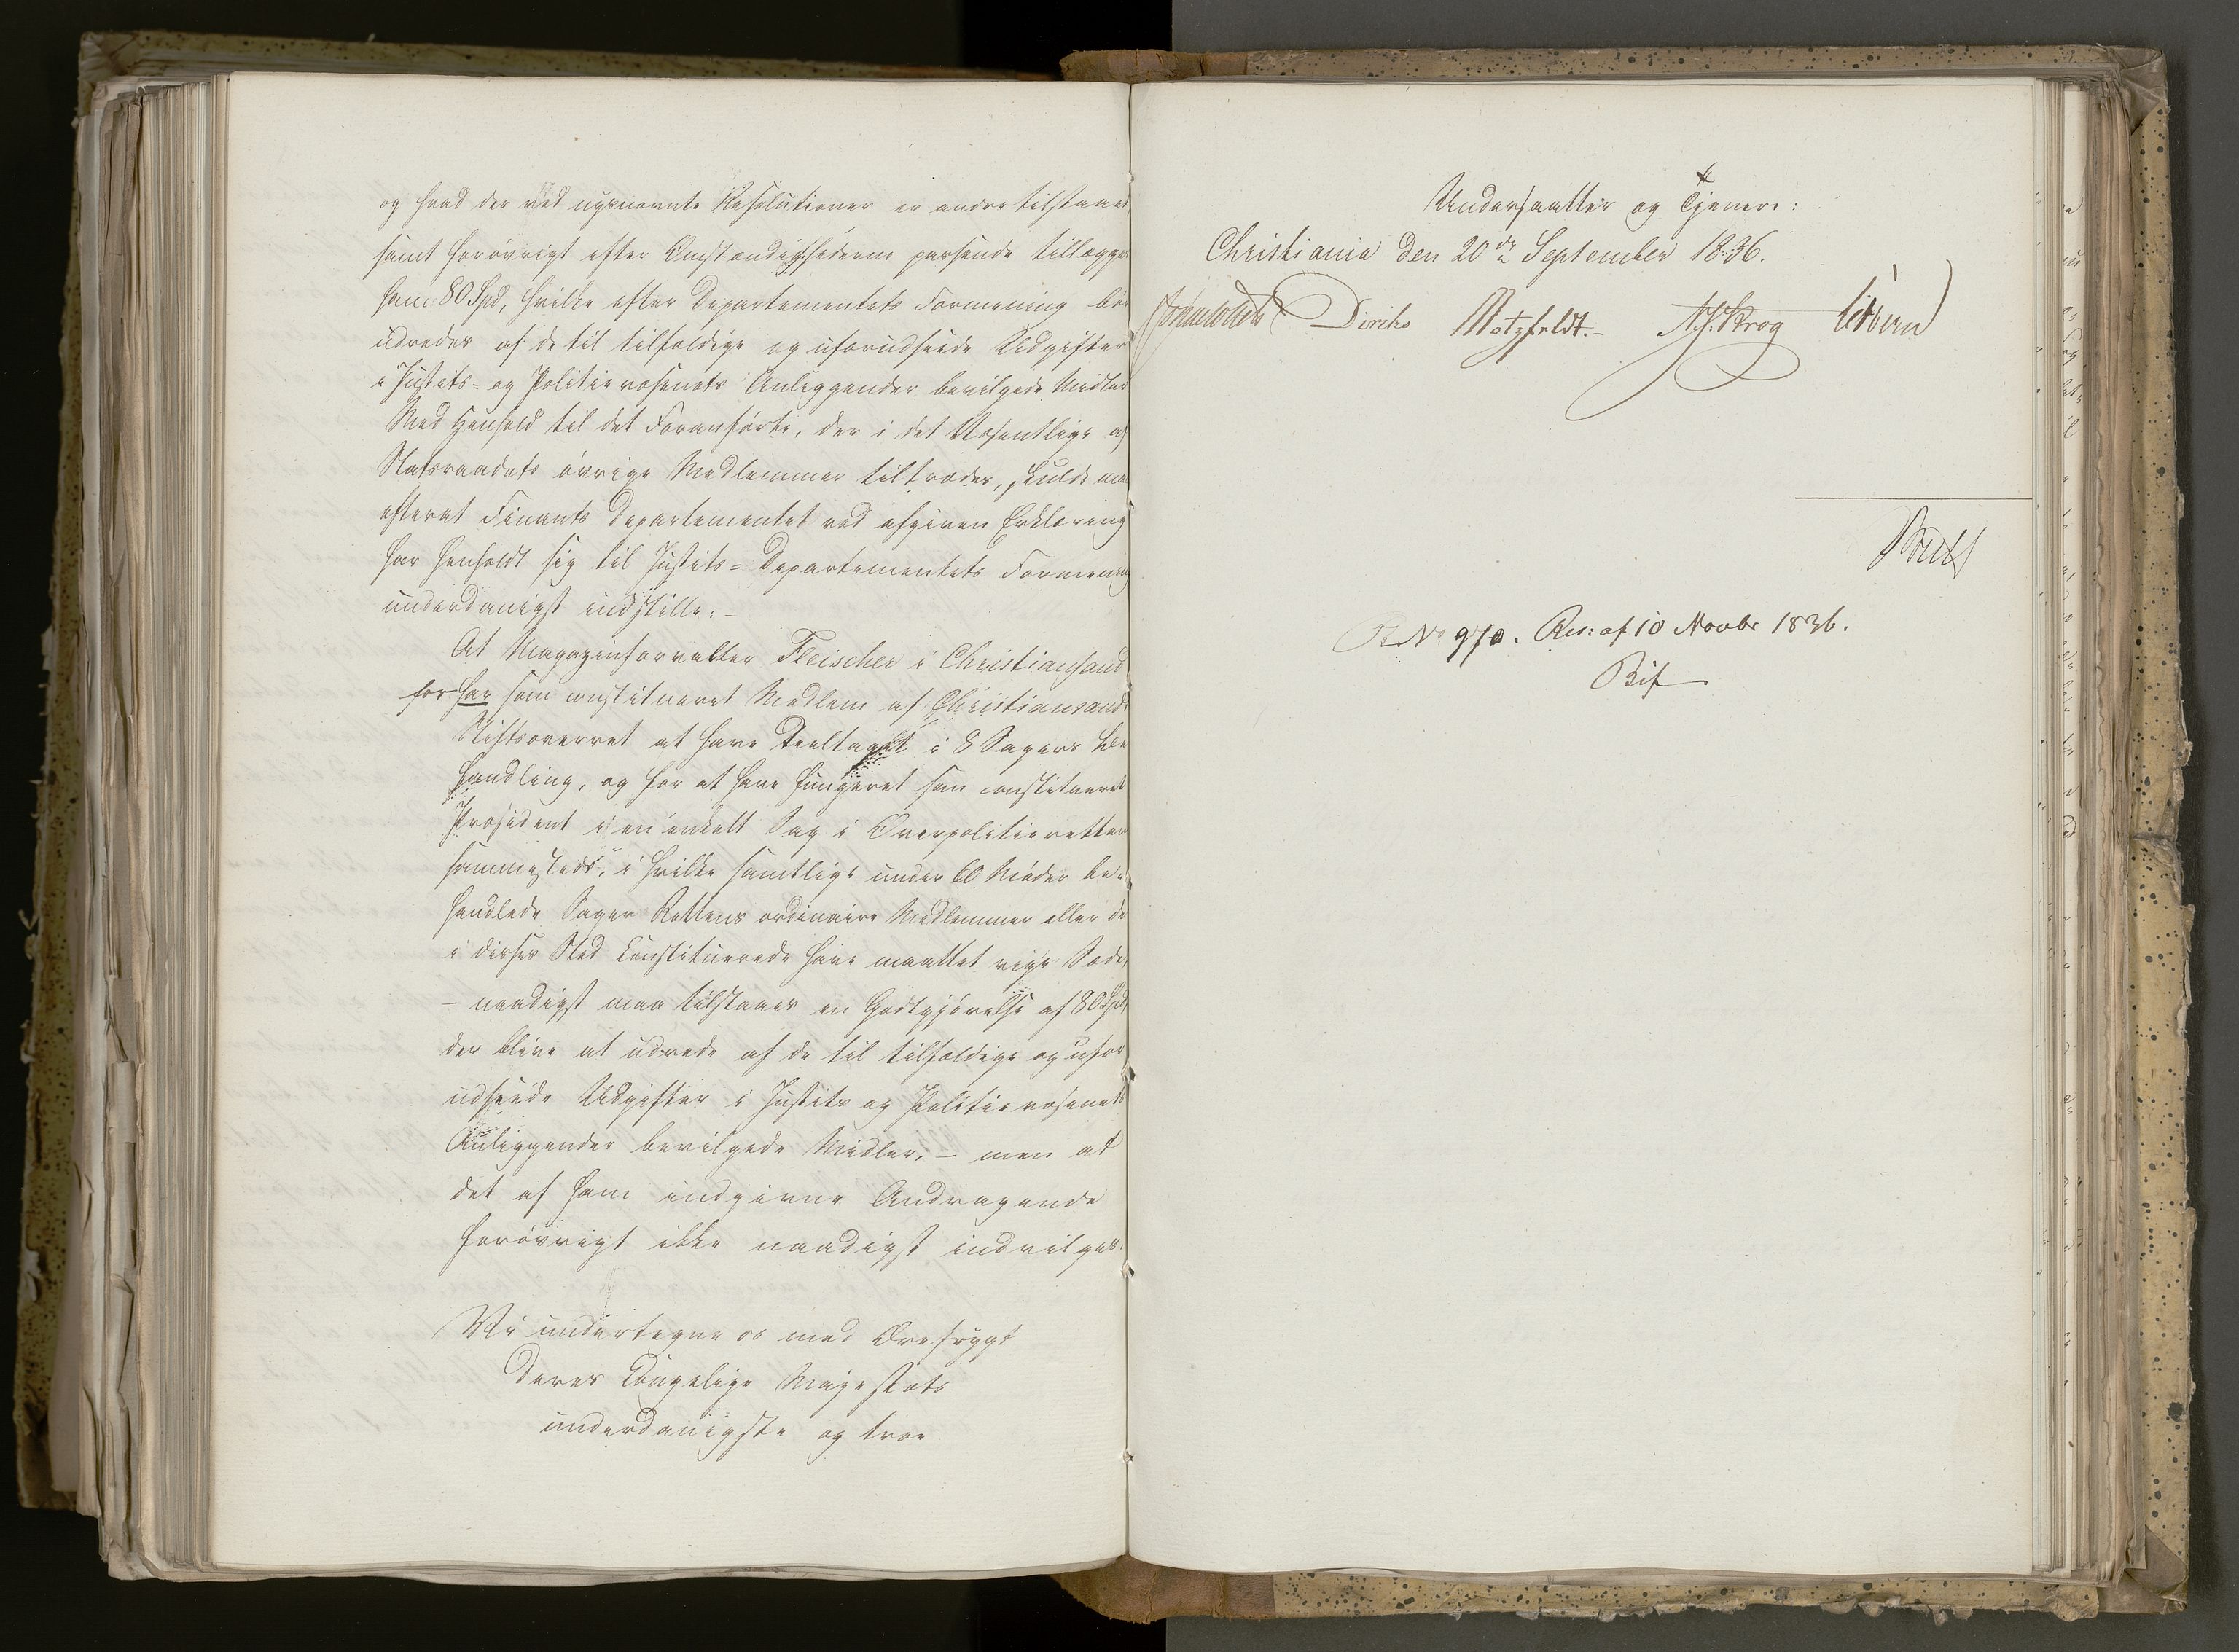 og hvad der ved nysnævnte Resolutioner er andre tilstaaet,
samt forøvrigt efter Omstændighederne passende tillægges
ham 80 Spd, hvilke efter Departementets Formening bør
udredes af de til tilfældige og uforudseede Udgifter
i Justits- og Politievæsenets Anliggender bevilgede Midler
Med Henhold til det Foranførte, der i det Væsentlige af
Statsraadets øvrige Medlemmer tiltrædes, skulde man
efterat Finants Departementet ved afgiven Erklæring
har henholdt sig til Justits-Departementets Formening
underdanigst indstille:-
At Magazinforvalter Fleischer i Christiansand
for har som constitueret Medlem af Christiansands
Stiftsoverret at have deeltaget i 8 Sagers Be
handling, og for at have fungeret som constitueret
Præsident i en enkelt Sag i Overpolitieretten
sammesteds, i hvilke samtlige under 60 Møder be-
handlede Sager Rettens ordinaire Medlemmer eller de
i disses Sted Constituerede have maattet vige Sæde,
- naadigst maa tilstaaes en Godtgjørelse af 80 Spd,
der blive at udrede af de til tilfældige og ufor
udseede Udgifter i Justits og Politievæsenets
Anliggender bevilgede Midler, - men at
det af ham indgivne Andragende
forøvrigt ikke naadigst indvilges.
Vi undertegne os med Ærefrygt
Deres Kongelige Majestæts
underdanigste og troe
Undersaatter og Tjenere:
Christiania den 20de September 1836.
Diriks Motzfeldt.- Krog Sibbern
No 970. Res: af 10 Novbr 1836.